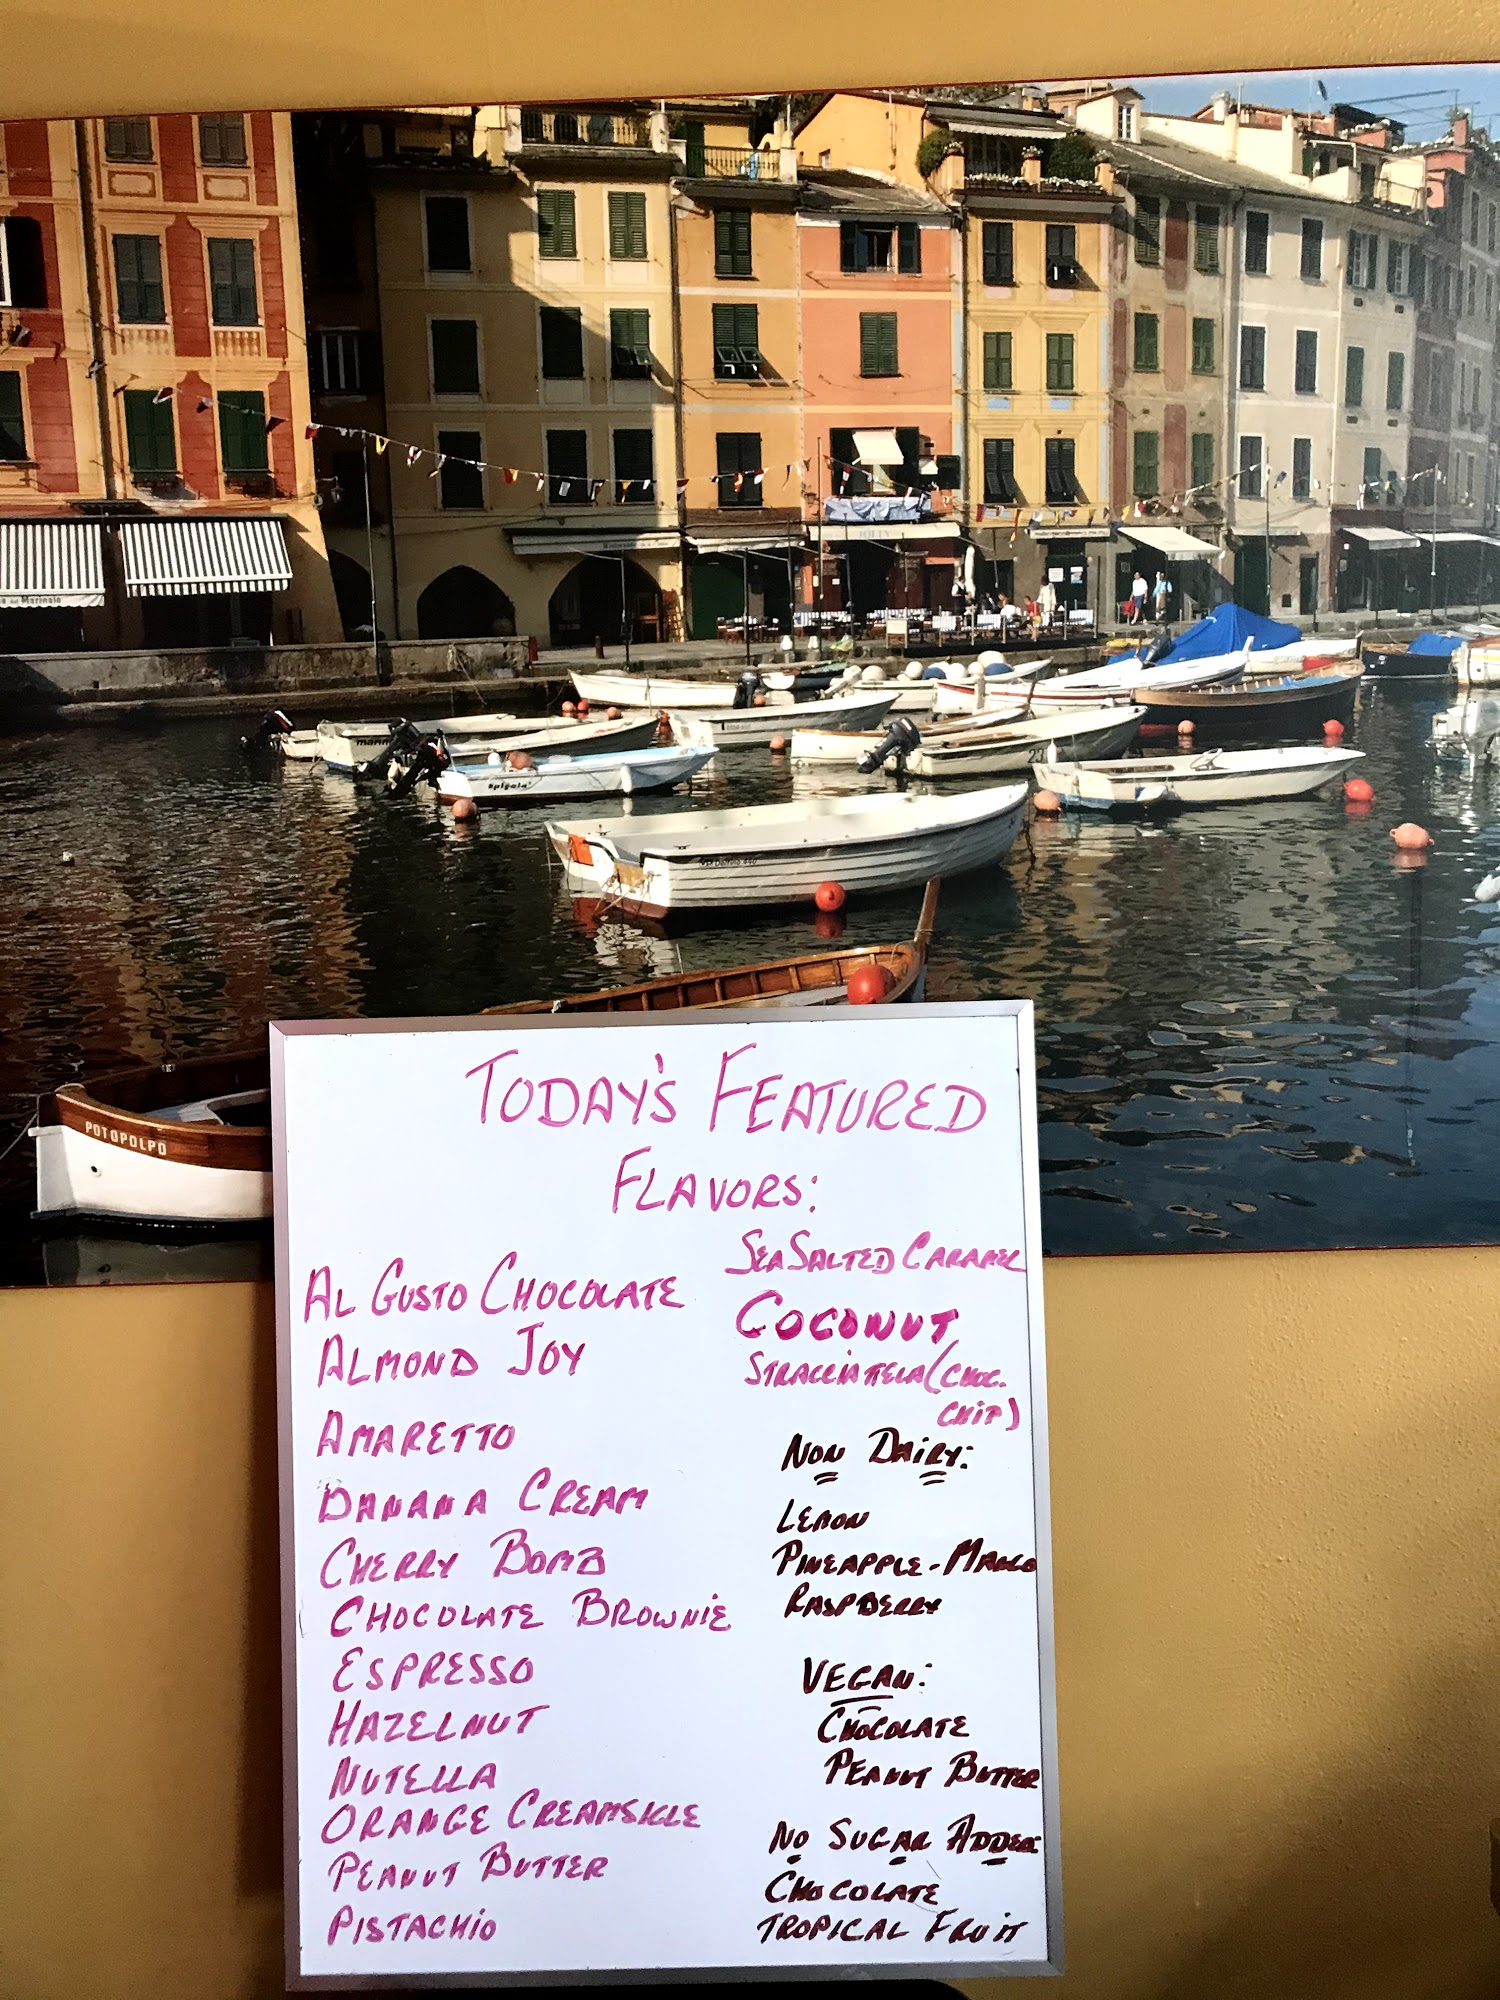 JOLLY
marin
Spigola
23
POTOPOLPO
TODAY'S FEATURED
FLAVORS:
AL GUSTO CHOCOLATE
ALMOND JOY
AMARETTO
BANANA CREAM
CHERRY BOMB
CHOCOLATE BROWNIE
ESPRESSO
HAZELNUT
NUTELLA
ORANGE CREAMSICLE
PEANUT BUTTER
PISTACHIO
SEA SALTED CARAMEL
COCONUT
STRACCIATELLA (CHOC.
CHIP)
NON DAIRY:
LEMON
PINEAPPLE-MANGO
RASPBERRY
VEGAN:
CHOCOLATE
PEANUT BUTTER
NO SUGAR ADDED
CHOCOLATE
TROPICAL FRUIT